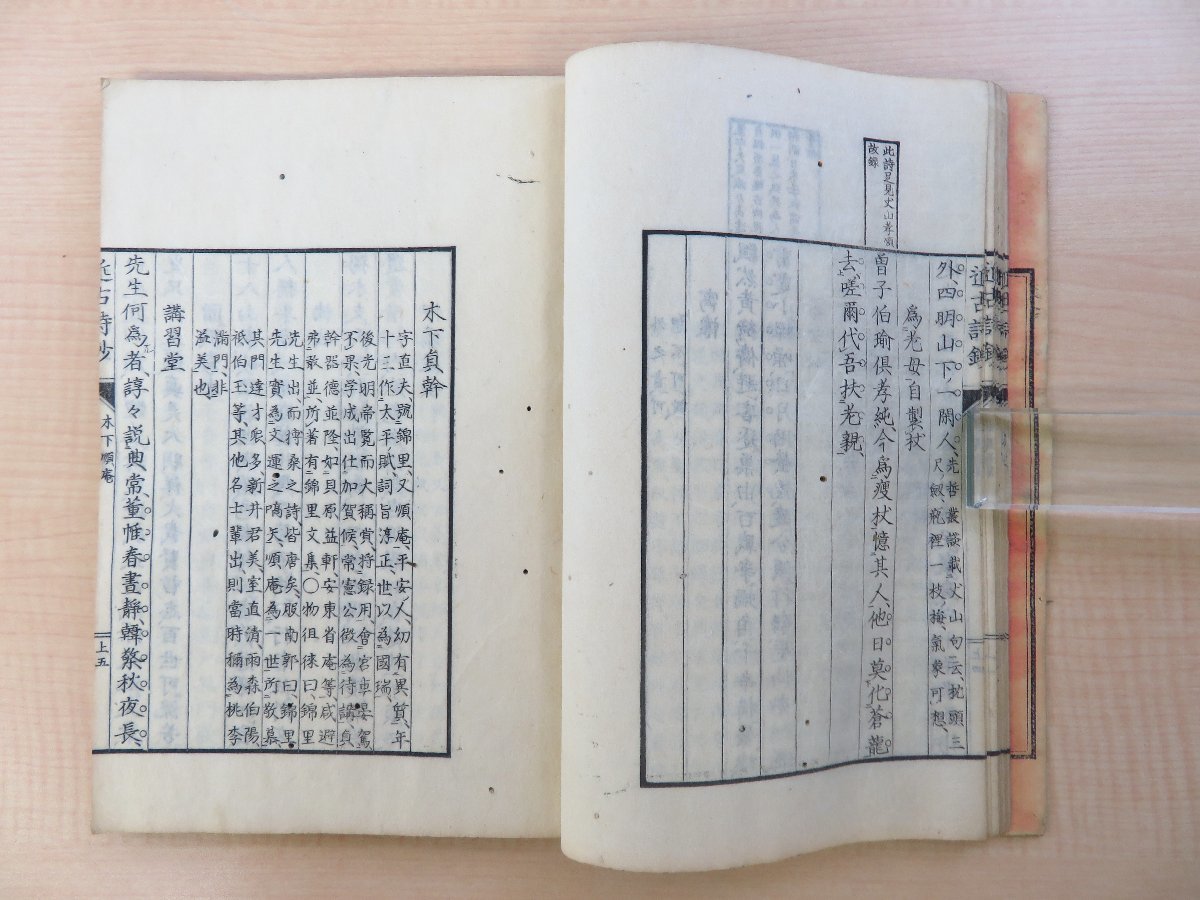 近古詩鈔
外、四明山下一閑人、先哲叢談載丈山句云、枕頭三
尺劔、瓶裡一枝梅、氣象可想、
爲老母自製杖
曽子伯瑜俱孝純今爲瘦杖憶其人他日莫化蒼龍
去嗟爾代吾扶老親
此詩足見丈山孝順
故錄
木下貞幹
字直夫、號錦里、又順庵、平安人、幼有異質、年
十三作太平賦、詞旨淳正、世以為國瑞、
後光明帝覽而大稱賞、将録用、會宮車晏駕
不果、学成出仕加賀候、常憲公徴為待講貞
幹器德並隆、如貝原益軒安東省庵等咸避
弟敢並、所著有錦里文集〇物徂徠曰、錦里
先生出、而搏桑之詩皆唐矣、服南郭曰、錦里
先生實為文運之嚆矢、順庵為一世所敬慕、
其門達才衆多、新井君美室直清雨森伯陽
祇伯玉等、其他名士輩出、則當時稱為桃李
滿門、非
益美也
講習堂
先生何爲者、諄々説典常、董帷春晝靜、韓檠秋夜長、
近古詩鈔
木下順庵
上五